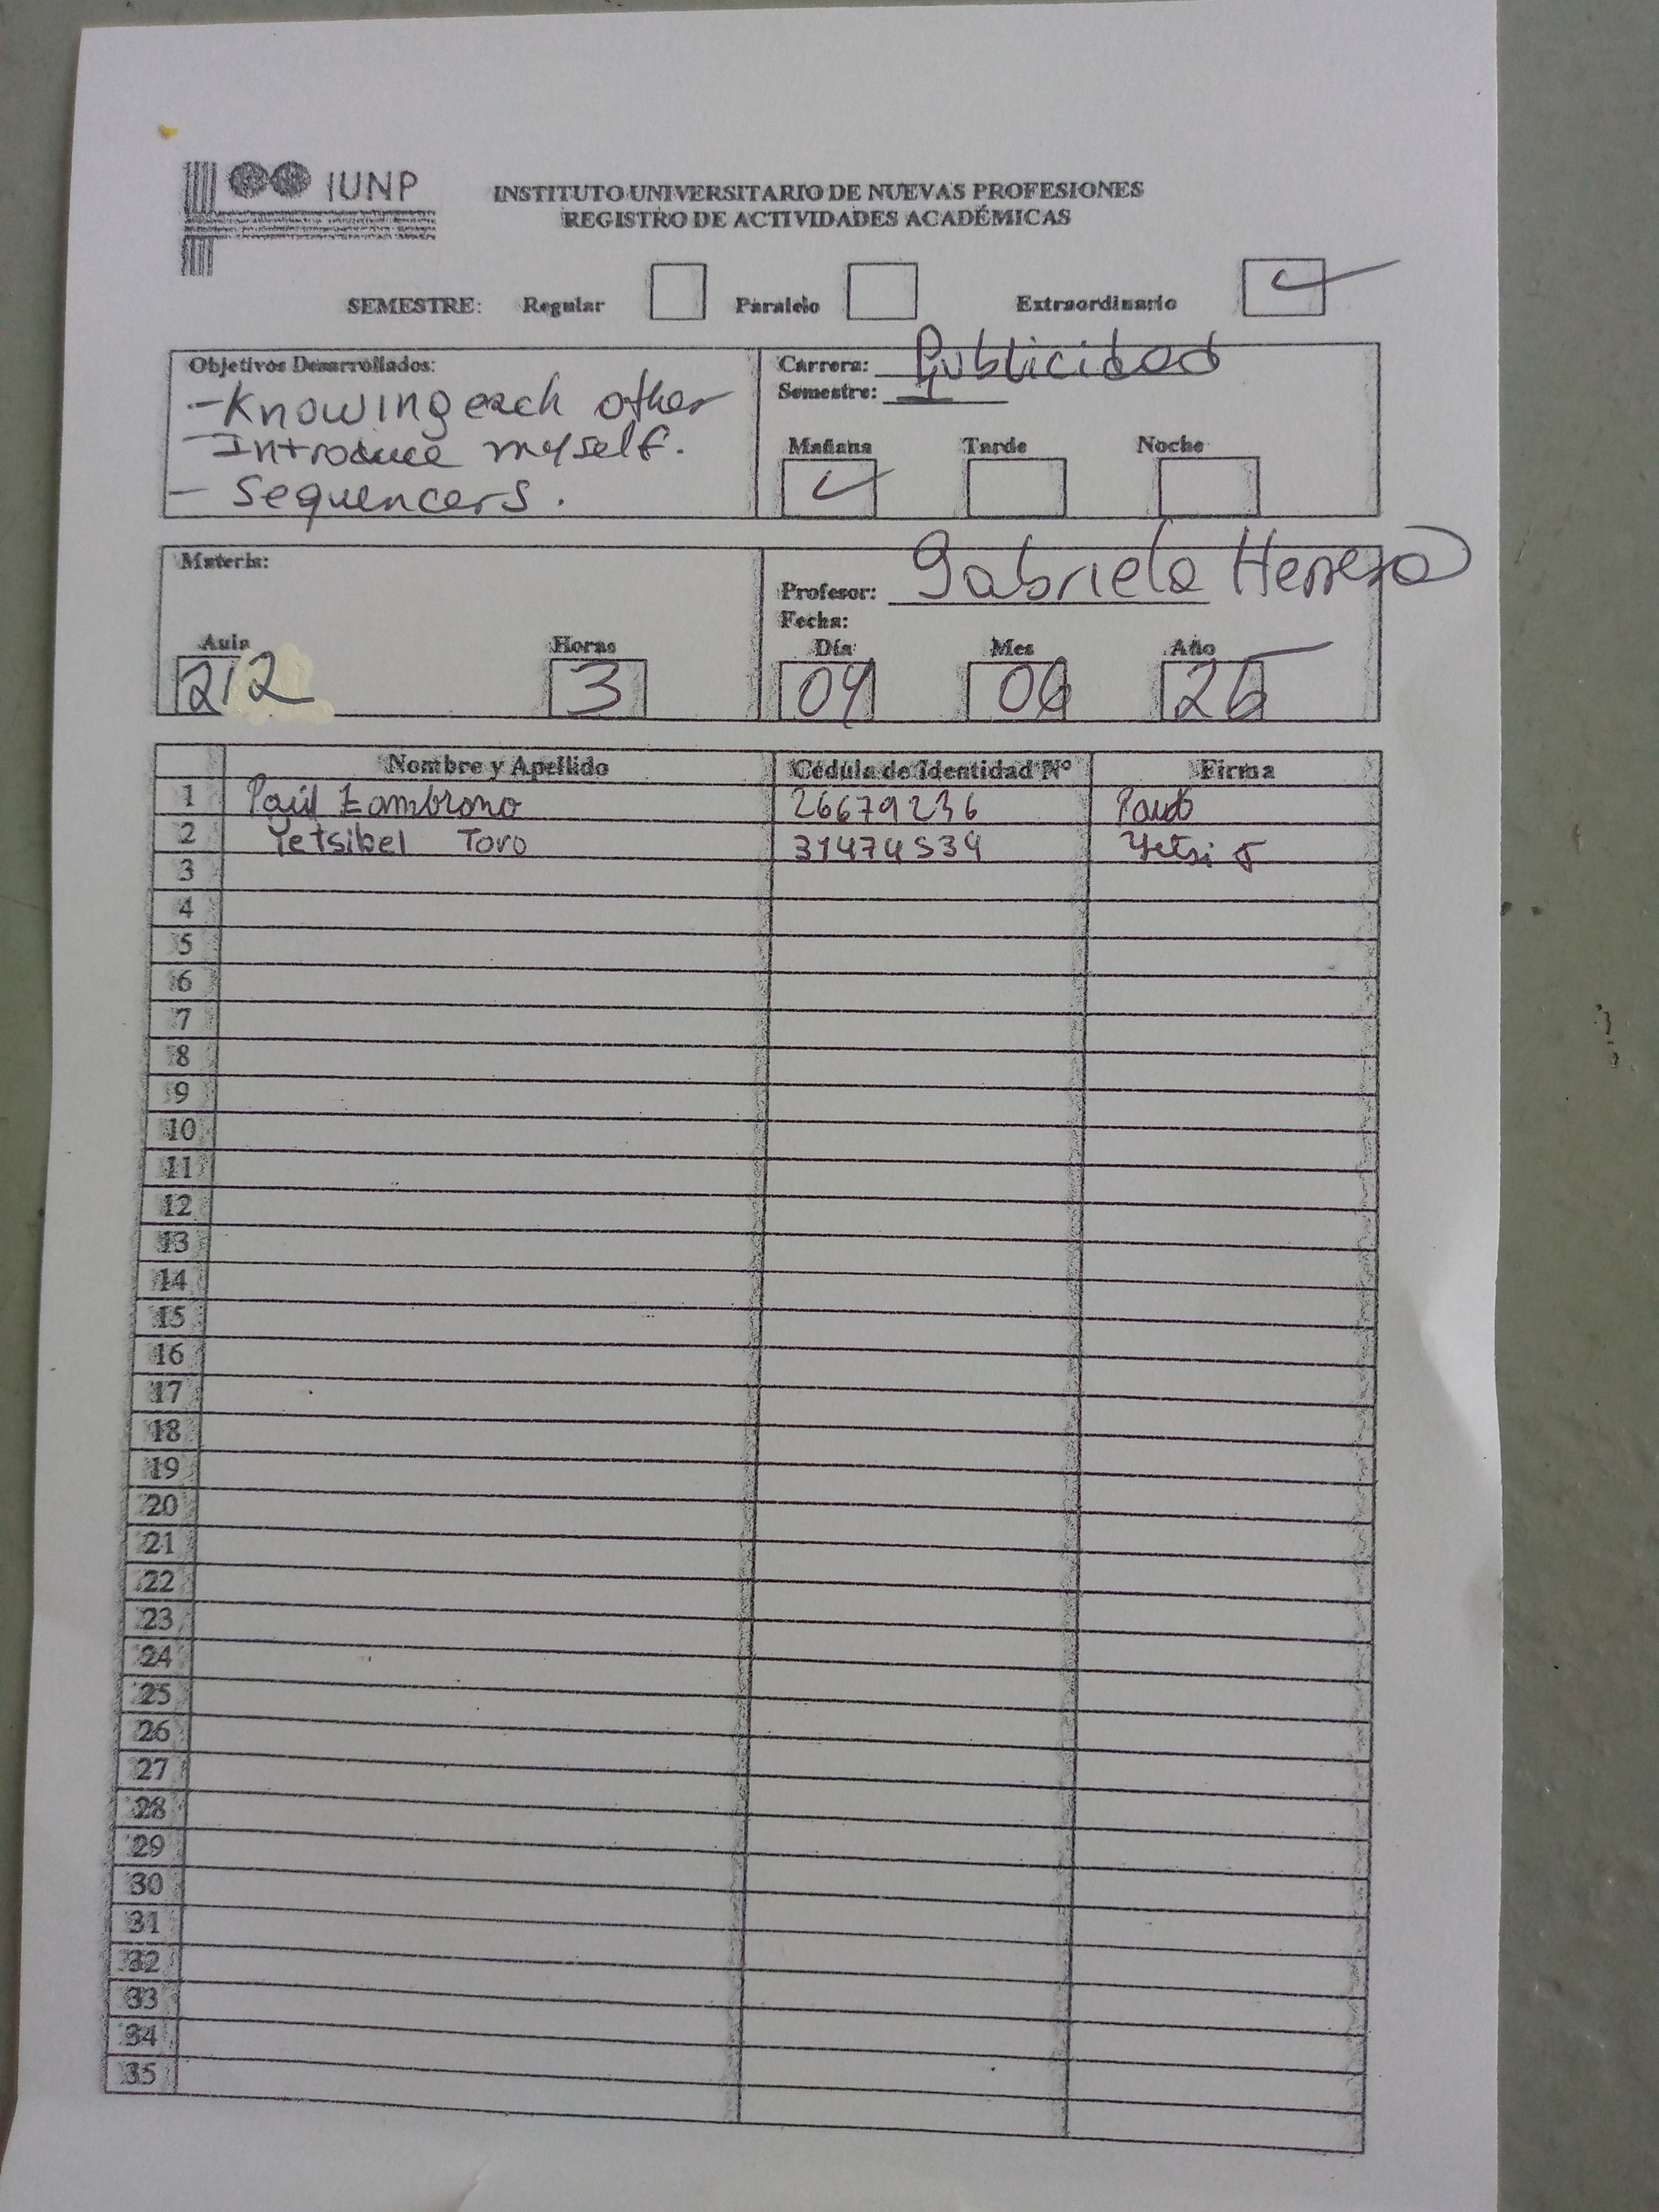 IUNP
INSTITUTO UNIVERSITARIO DE NUEVAS PROFESIONES
REGISTRO DE ACTIVIDADES ACADÉMICAS
SEMESTRE: Regular Paralelo Extraordinario
Objetivos Desarrollados:
- Knowing each other
- Introduce myself.
- Sequencers.
Carrera: Publicidad
Semestre: I
Mañana Tarde Noche
Materia:
Profesor: Gabriela Herrera
Fecha:
Aula Horas Día Mes Año
212 3 04 06 25
Nombre y Apellido Cédula de Identidad Nº Firma
1 Paúl Zambrano 26679236
2 Yetsibel Toro 31474534 Yetsi T
3
4
5
6
7
8
9
10
11
12
13
14
15
16
17
18
19
20
21
22
23
24
25
26
27
28
29
30
31
32
33
34
35